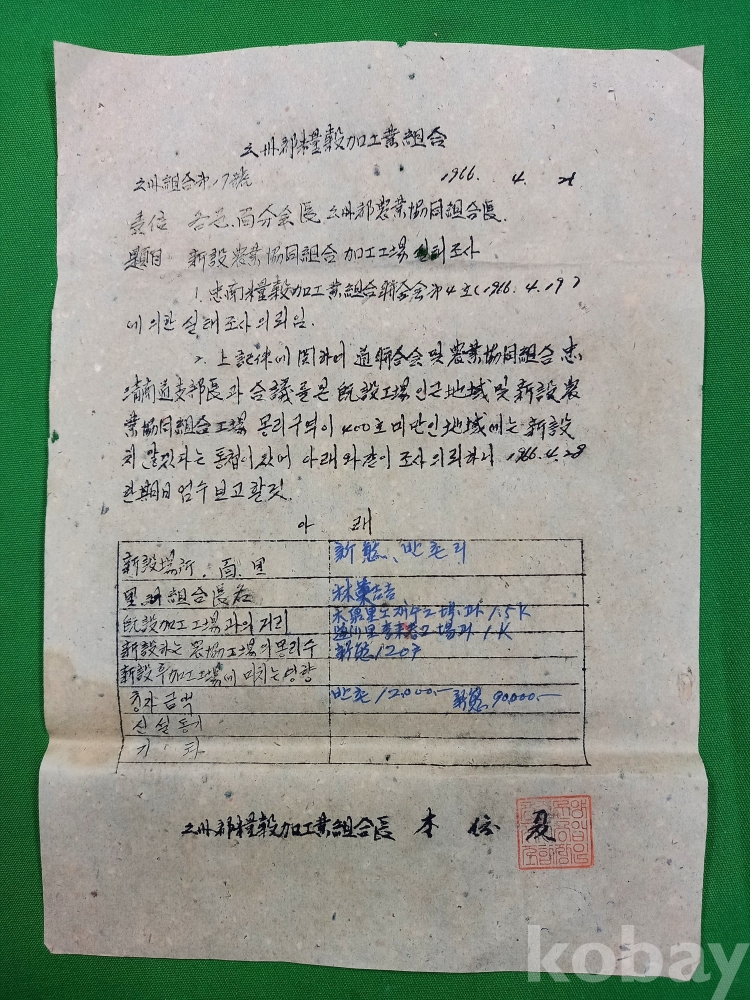 公州郡糧穀加工業組合
公州組合第17號 1966. 4. 21
各邑.面分会長 公州郡農業協同組合長.
題目 新設農業協同組合加工工場실태조사
1. 忠南糧穀加工業組合聯合会第4호(1966. 4. 19)
에 의한 실태조사의뢰임.
2. 上記件에 関하여 道聯合会 및 農業協同組合忠
清南道支部長과 合議를 본 既設工場 인근地域 및 新設農
業協同組合工場 몽리구역이 400호 미만인 地域에는 新設
치 않겠다는 통첩이 있어 아래와 같이 조사의뢰하니 1966. 4. 28
한 期日 엄수 보고할 것.
아 래
新設場所. 面. 里 新
里洞組合長名 林
既設加工工場과의 거리 工場과 1.5K
工場과 1K
新設하는 農協工場의 몽리수 120戶
新設후 加工工場에 미치는 영향
총자금액 12,000.— 90,000.—
신설동기
기 타
公州郡糧穀加工業組合長
kobay